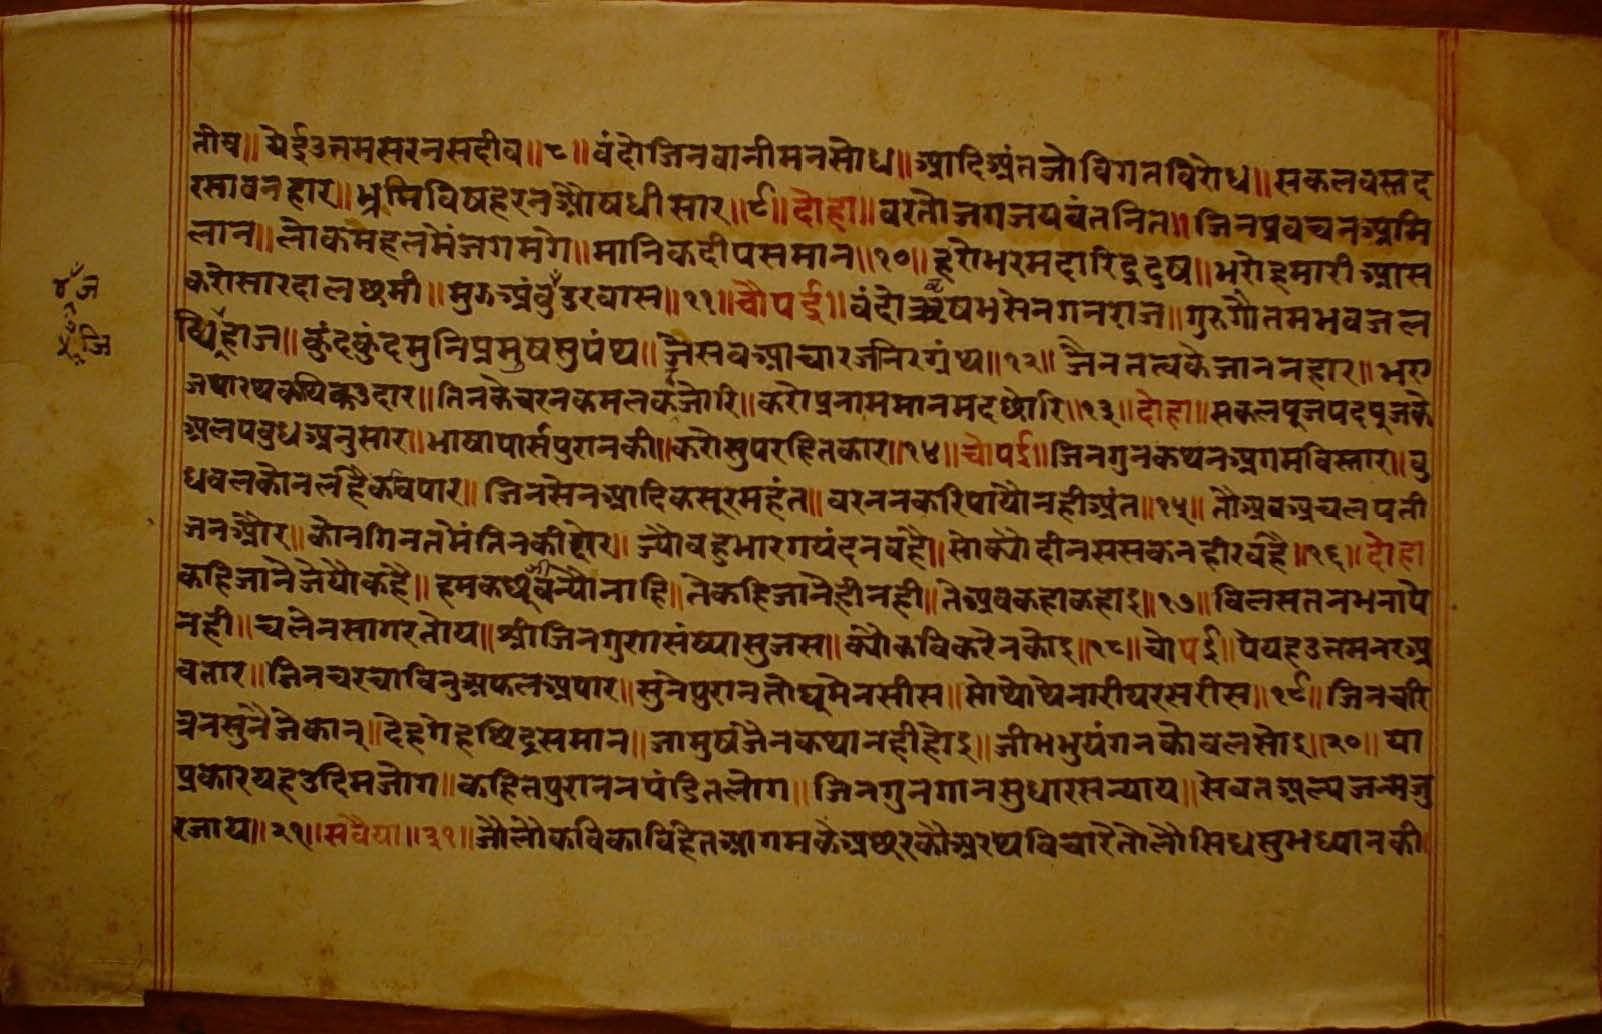 तीष॥ येईउत्तमसरनसदीव॥८॥वंदोजिनवानीमनसोध॥आदिअंतजोविगतविरोध॥सकलवस्तद
रसावनहार॥भ्रमिविषहरनऔषधीसार॥९॥दोहा॥वरतौजगजयवंतनित॥जिनप्रवचनअमि
लान॥लोकमहलमेंजगमगे॥मानिकदीपसमान॥१०॥हरोभरमदारिद्रदुष॥भरोहमारीआस
करोसारदालछमी॥मुझअंबुउरवास॥११॥चौपई॥वंदोऋषभसेनगनराज॥गुरुगौतमभवजल
कुंदकुंदमुनिप्रमुषसुपंथ॥जेसवआचारजनिरग्रंथ॥१२॥जैनतत्वकेजाननहार॥भए
जथारथकथिकउदार॥तिनकेचरनकमलकरजोरि॥करोप्रनाममानमदछोरि॥१३॥दोहा॥सकलपूजपदपूजके
अलपबुधअनुसार॥भाषापार्सपुरानकी॥करोसुपरहितकार॥१४॥चोपई॥जिनगुनकथनअगमविस्तार॥बु
धवलकोनलहैकविपार॥जिनसेनआदिकसूरमहंत॥वरननकरिपायौनहीअंत॥१५॥तौअवअचलपती
जनऔर॥कोनगिनतमेंतिनकीठोर॥ज्यौवहुभारगयंदनवहै॥सोक्योदीनससकनहीरवहै॥१६॥दोहा
कहिजानेजेयौकहै॥हमकछुवन्यौनाहि॥तेकहिजानैहीनही॥तेअवकहाकहाइ॥१७॥विलसतनभनापै
नही॥चलेनसागरतोय॥श्रीजिनगुरगासंष्यासुजस॥क्यौकविकरेनकोइ॥१८॥चोपई॥पेयहउत्तमनरअ
वतार॥जिनचरचाविनुअफलअपार॥सुनेपुरानतोघुमेनसीस॥सोथोथेनारीयरसरीस॥१९॥जिनचरि
त्रनसुनैजेकान॥देहगेहछिद्रसमान॥जामुषजैनकथानहीहोइ॥जीभभुयंगनकोवलसोइ॥२०॥या
प्रकारयहउदिमजोग॥कहितपुराननपंडितलोग॥जिनगुनगानसुधारसन्याय॥सेवतअल्पजन्मजु
रजाय॥२१॥सवैया॥३१॥जौलोकविकाविहेतआगमकेअछरकौअरथविचारेतोलौसिधसुभध्यानकी